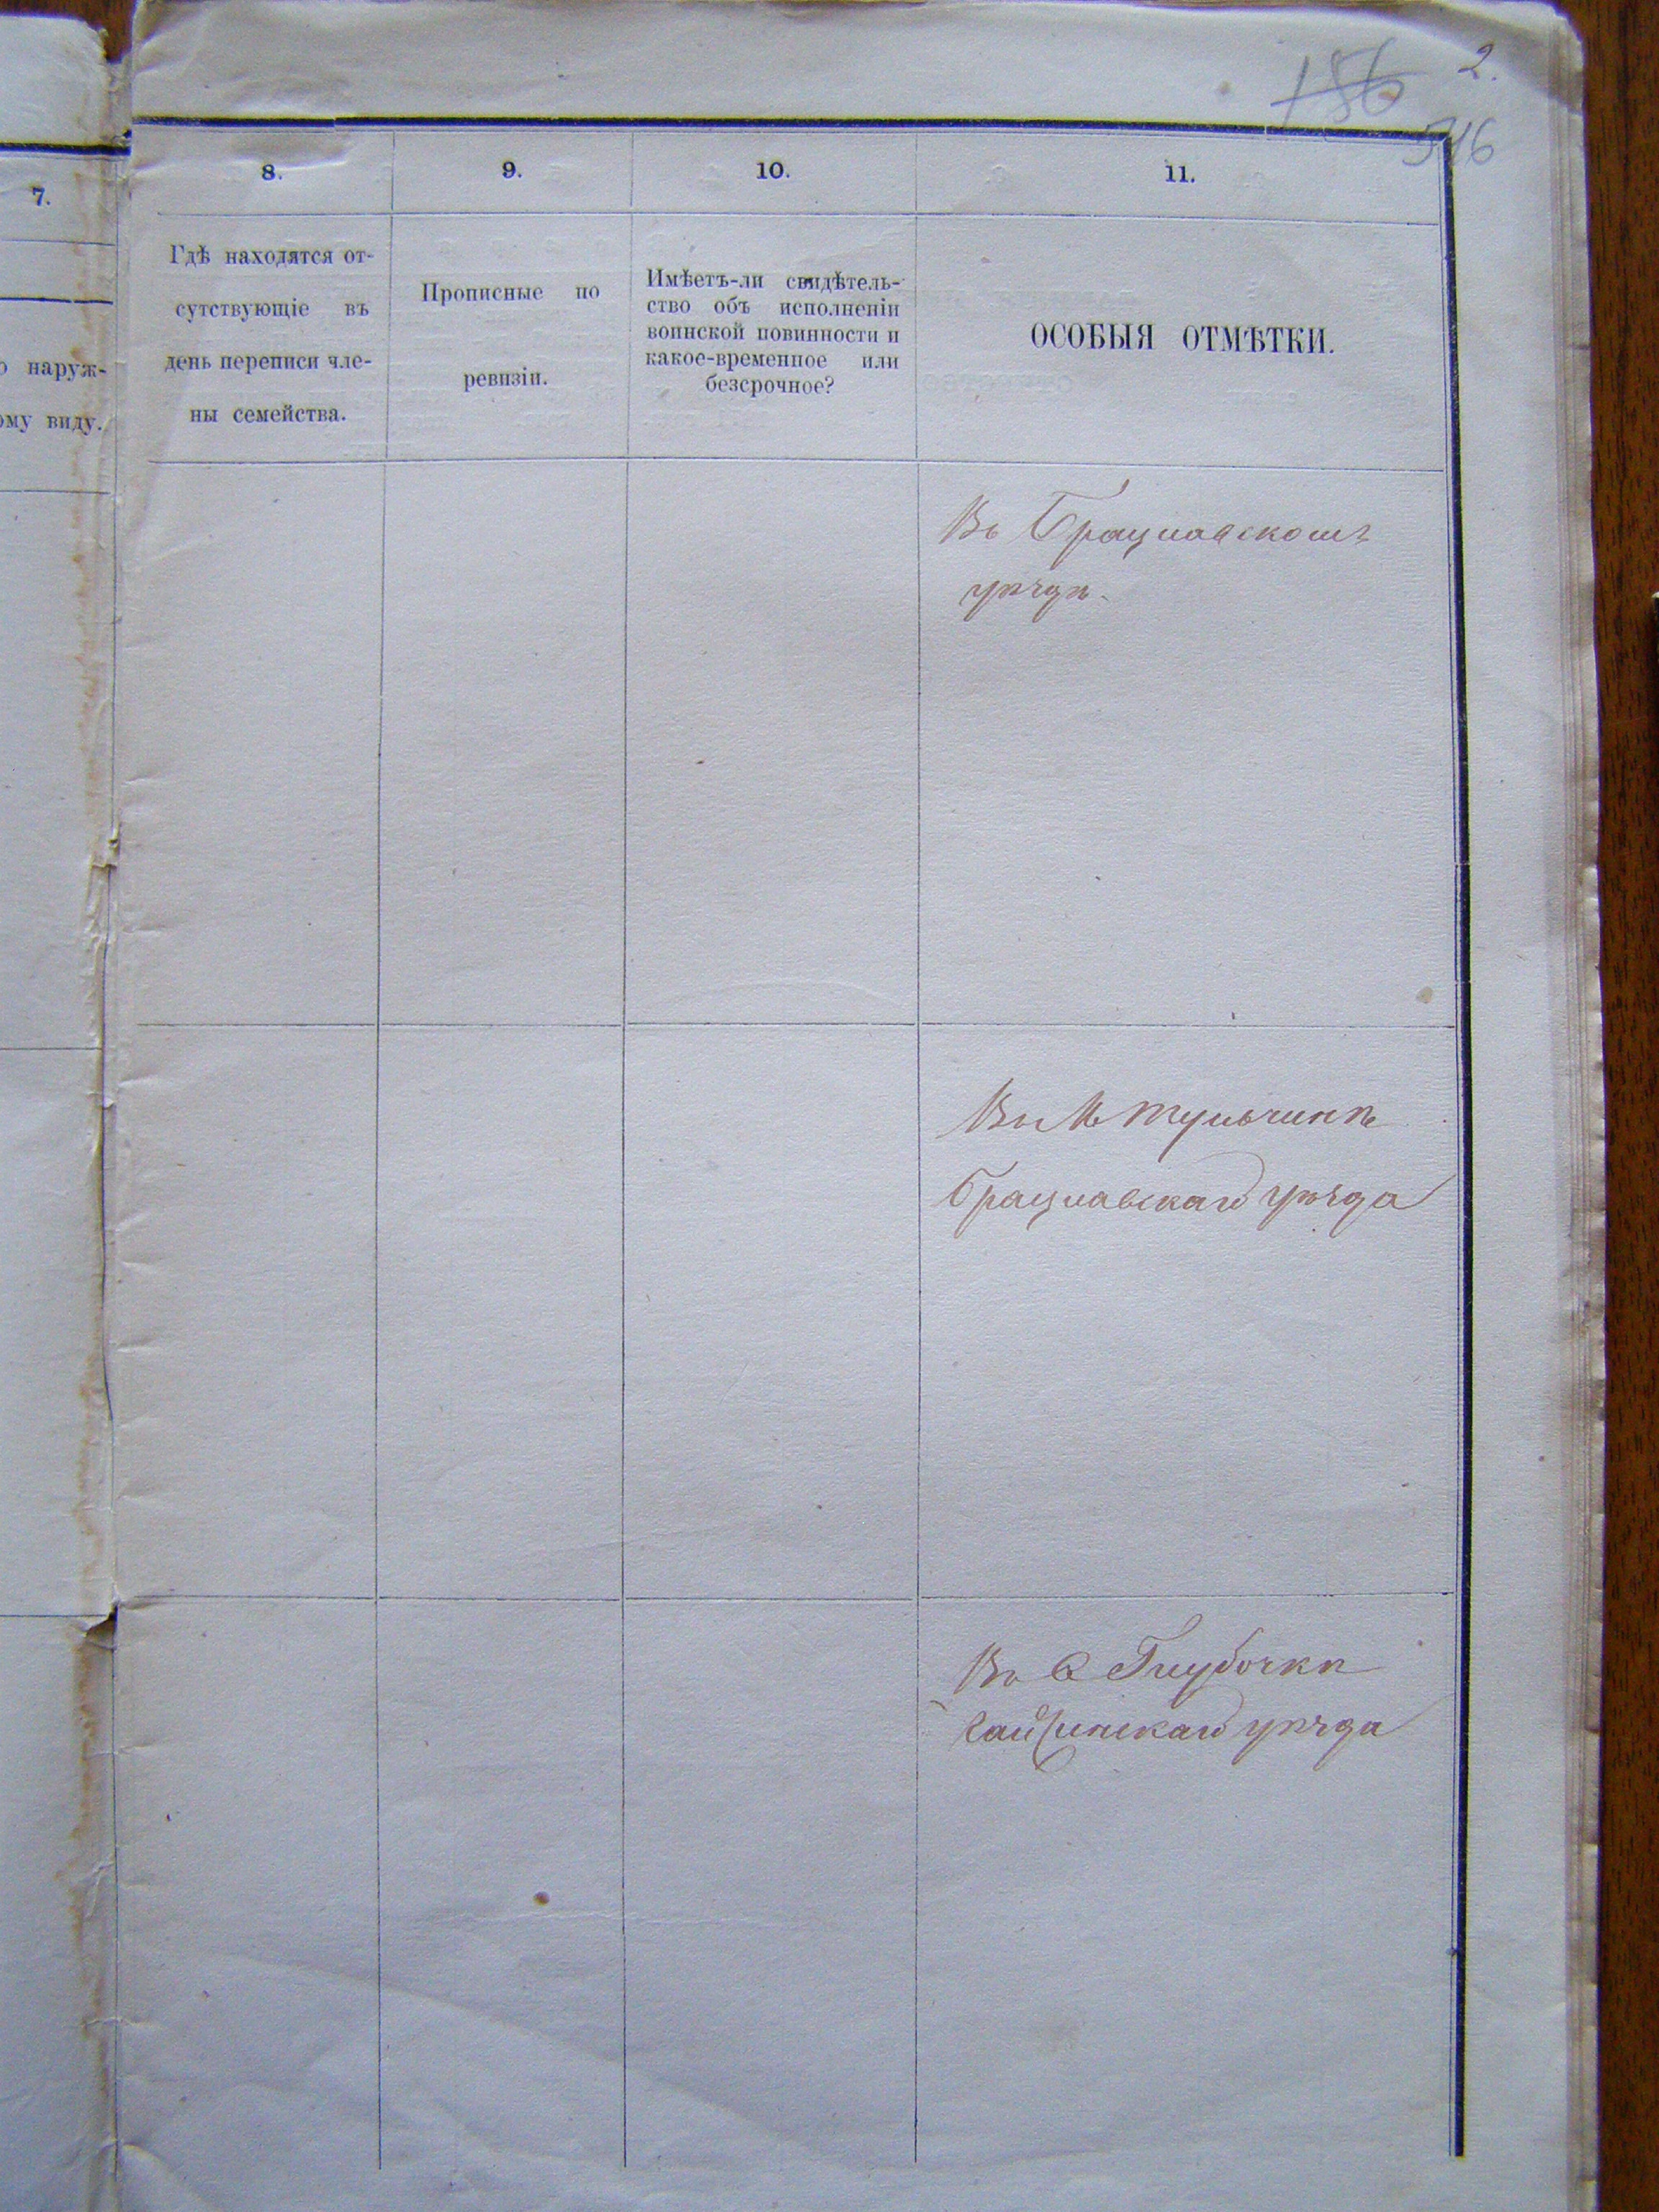 2.
186
516
7.
о наруж-
ому виду.
8.
9.
10.
11.
Гдѣ находятся от-
сутствующіе въ
день переписи чле-
ны семейства.
Прописные по
ревизіи.
Имѣетъ-ли свидѣтель-
ство объ исполненіи
воинской повинности и
какое-временное или
безсрочное?
ОСОБЫЯ ОТМѢТКИ.
Въ Брацлавскомъ
уѣздѣ.
Въ М Тульчинѣ
Брацлавскаго уѣзда
Въ С Глубочкѣ
Гайсинскаго уѣзда